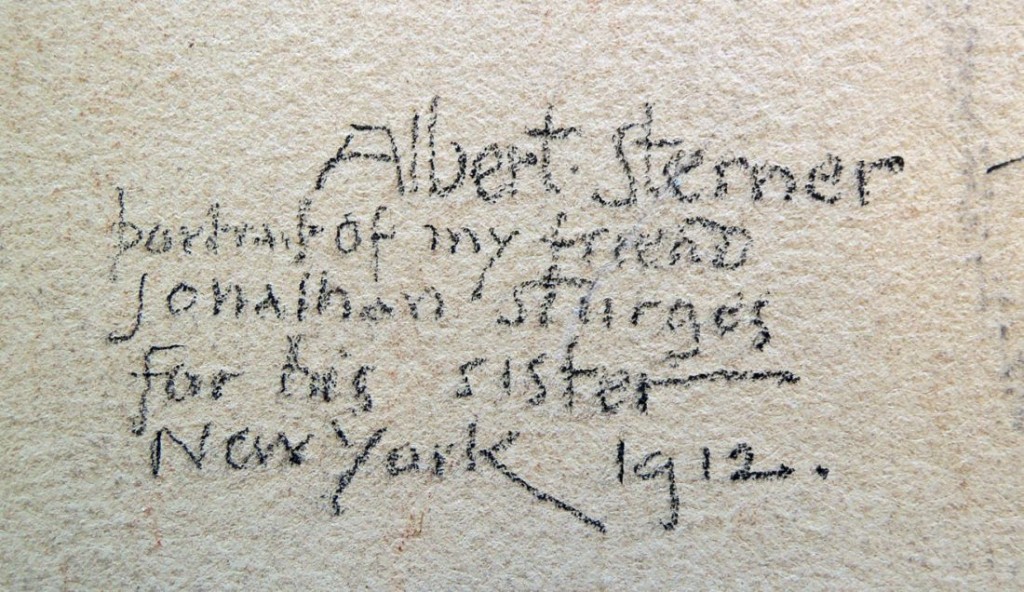 Albert. Sterner
portrait of my friend
Jonathan Sturges
for his sister—
New York 1912.